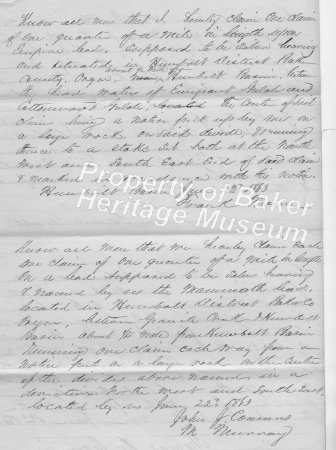 Know all men that I hereby Claim One Claim
of One quarter of a Mile in length upon
Empire lead. Supposed to be Silver bearing
and situated in Humbolt District Baker
County, Oregon, Humbolt Basin, between
the head waters of Emigrant Gulch and
Cottonwood Gulch, located the Center of said
Claim being a notice put up by me on
a large rock, on said divide, & running
thence to a stake set both at the North
West and South East End of said Claim
& marked in accordance with this notice.
Humbolt Basin June 22d 1863
Frank
Property of Baker
Heritage Museum
Know all men that we hereby Claim Each
One Claim of One quarter of a Mile in length
on a lead supposed to be Silver bearing
& named by us the Mammoth lead,
located in Humbolt District Baker Co
Oregon, between Granite Creek & Humbolt
Basin about ¾ mile from Humbolt Basin
running one claim each way from a
notice put on a large rock on the Center
of the divide above named, in a
deviation North West and South East,
located by us June 22d 1863
John J Commins
M. Murray